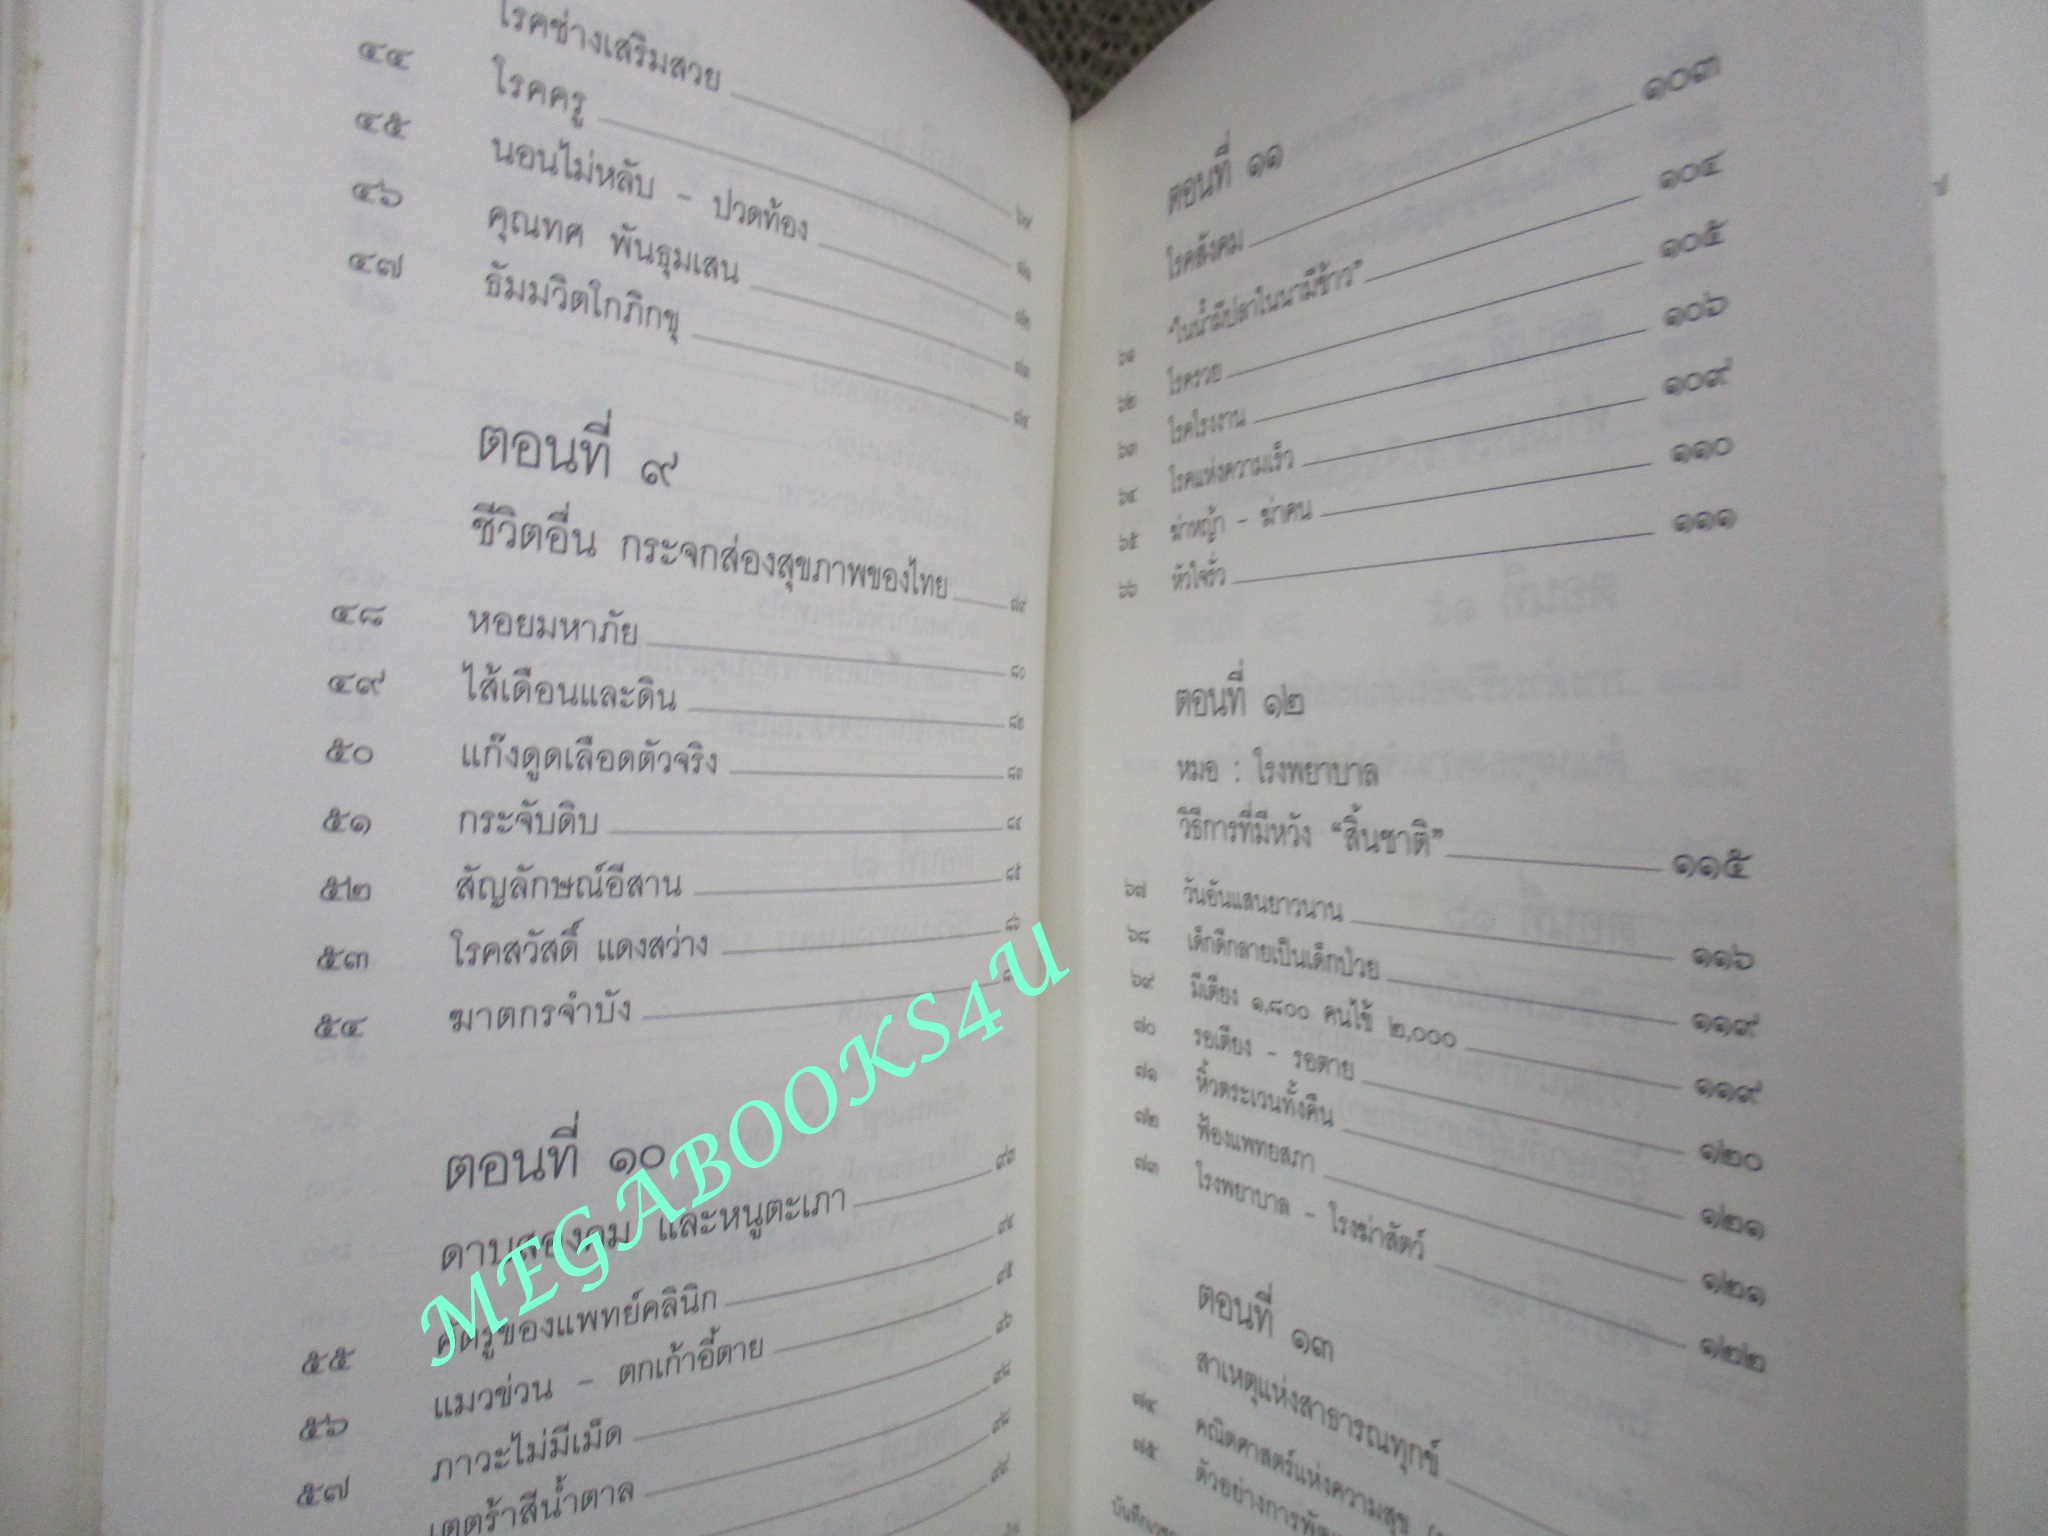 โรคช่างเสริมสวย
๔๔ โรคครู ๖๙
๔๕ นอนไม่หลับ - ปวดท้อง
๔๖ คุณทศ พันธุมเสน
๔๗ ธัมมวิตกโกภิกขุ
ตอนที่ ๙
ชีวิตอื่น กระจกส่องสุขภาพของไทย ๗๙
๔๘ หอยมหาภัย ๘๐
๔๙ ไส้เดือนและดิน ๘๒
๕๐ แก๊งดูดเลือดตัวจริง ๘๓
๕๑ กระจับดิบ ๘๔
๕๒ สัญลักษณ์อีสาน ๘๕
๕๓ โรคสวัสดิ์ แดงสว่าง ๘๖
๕๔ ฆาตกรจำบัง
ตอนที่ ๑๐
ดาบสองคม และหนูตะเภา ๙๓
๕๕ ศัตรูของแพทย์คลินิก ๙๔
๕๖ แมวข่วน - ตกเก้าอี้ตาย ๙๕
๕๗ ภาวะไม่มีเม็ด ๙๖
เตตร้าสีน้ำตาล ๙๘
ตอนที่ ๑๑
โรคสังคม ๑๐๓
๖๑ “ในน้ำมีปลาในนามีข้าว” ๑๐๔
๖๒ โรครวย ๑๐๕
๖๓ โรคโรงงาน ๑๐๖
๖๔ โรคแห่งความเร็ว ๑๐๙
๖๕ ฆ่าหญ้า - ฆ่าคน ๑๑๐
๖๖ หัวใจรั่ว ๑๑๑
ตอนที่ ๑๒
หมอ : โรงพยาบาล
วิธีการที่มีหวัง “สิ้นชาติ” ๑๑๕
๖๗ วันอันแสนยาวนาน ๑๑๖
๖๘ เด็กดีกลายเป็นเด็กป่วย ๑๑๙
๖๙ มีเตียง ๑,๘๐๐ คนไข้ ๒,๐๐๐ ๑๑๙
๗๐ รอเตียง - รอตาย ๑๒๐
๗๑ หิ้วตระเวนทั้งคืน ๑๒๑
๗๒ ฟ้องแพทยสภา ๑๒๑
๗๓ โรงพยาบาล - โรงฆ่าสัตว์ ๑๒๒
ตอนที่ ๑๓
สาเหตุแห่งสาธารณทุกข์
๗๔ คณิตศาสตร์แห่งความสุข
๗๕ ตัวอย่างการพัฒ
MEGABOOKS4U